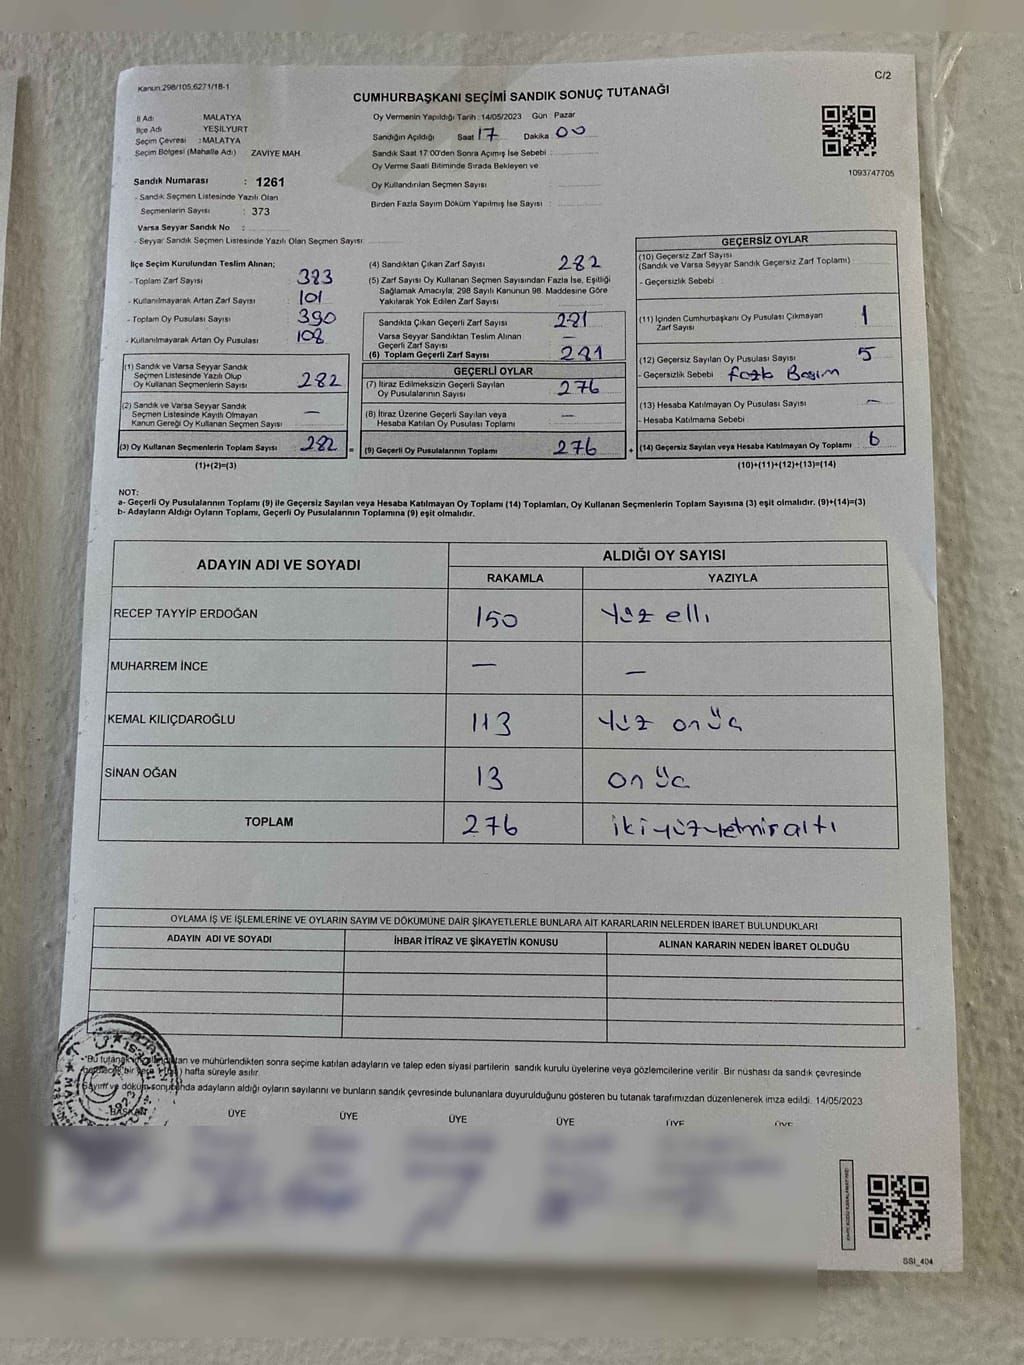 Kanun:298/105;6271/18-1
C/2
CUMHURBAŞKANI SEÇİMİ SANDIK SONUÇ TUTANAĞI
İl Adı : MALATYA
İlçe Adı YEŞİLYURT
Seçim Çevresi : MALATYA
Seçim Bölgesi (Mahalle Adı) : ZAVİYE MAH.
Sandık Numarası : 1261
- Sandık Seçmen Listesinde Yazılı Olan
Seçmenlerin Sayısı : 373
Varsa Seyyar Sandık No :
- Seyyar Sandık Seçmen Listesinde Yazılı Olan Seçmen Sayısı
Oy Vermenin Yapıldığı Tarih : 14/05/2023 Gün : Pazar
Sandığın Açıldığı Saat 17 Dakika 00
Sandık Saat 17:00'den Sonra Açımış İse Sebebi :
Oy Verme Saati Bitiminde Sırada Bekleyen ve
Oy Kullandırılan Seçmen Sayısı
Birden Fazla Sayım Döküm Yapılmış İse Sayısı :
1093747705
İlçe Seçim Kurulundan Teslim Alınan;
- Toplam Zarf Sayısı : 383
- Kullanılmayarak Artan Zarf Sayısı : 101
- Toplam Oy Pusulası Sayısı : 390
- Kullanılmayarak Artan Oy Pusulası : 108
(1) Sandık ve Varsa Seyyar Sandık
Seçmen Listesinde Yazılı Olup
Oy Kullanan Seçmenlerin Sayısı : 282
(2) Sandık ve Varsa Seyyar Sandık
Seçmen Listesinde Kayıtlı Olmayan
Kanun Gereği Oy Kullanan Seçmen Sayısı : —
(3) Oy Kullanan Seçmenlerin Toplam Sayısı : 282
(1)+(2)=(3)
(4) Sandıktan Çıkan Zarf Sayısı : 282
(5) Zarf Sayısı Oy Kullanan Seçmen Sayısından Fazla İse, Eşitliği
Sağlamak Amacıyla, 298 Sayılı Kanunun 98. Maddesine Göre
Yakılarak Yok Edilen Zarf Sayısı
Sandıkta Çıkan Geçerli Zarf Sayısı : 281
Varsa Seyyar Sandıktan Teslim Alınan
Geçerli Zarf Sayısı : —
(6) Toplam Geçerli Zarf Sayısı : 281
GEÇERLİ OYLAR
(7) İtiraz Edilmeksizin Geçerli Sayılan
Oy Pusulalarının Sayısı : 276
(8) İtiraz Üzerine Geçerli Sayılan veya
Hesaba Katılan Oy Pusulası Toplamı : —
= (9) Geçerli Oy Pusulalarının Toplamı : 276
GEÇERSİZ OYLAR
(10) Geçersiz Zarf Sayısı
(Sandık ve Varsa Seyyar Sandık Geçersiz Zarf Toplamı) :
- Geçersizlik Sebebi :
(11) İçinden Cumhurbaşkanı Oy Pusulası Çıkmayan
Zarf Sayısı : 1
(12) Geçersiz Sayılan Oy Pusulası Sayısı : 5
- Geçersizlik Sebebi : fazla Basım
(13) Hesaba Katılmayan Oy Pusulası Sayısı : —
- Hesaba Katılmama Sebebi :
+ (14) Geçersiz Sayılan veya Hesaba Katılmayan Oy Toplamı : 6
(10)+(11)+(12)+(13)=(14)
NOT:
a- Geçerli Oy Pusulalarının Toplamı (9) ile Geçersiz Sayılan veya Hesaba Katılmayan Oy Toplamı (14) Toplamları, Oy Kullanan Seçmenlerin Toplam Sayısına (3) eşit olmalıdır. (9)+(14)=(3)
b- Adayların Aldığı Oyların Toplamı, Geçerli Oy Pusulalarının Toplamına (9) eşit olmalıdır.
ADAYIN ADI VE SOYADI ALDIĞI OY SAYISI
RAKAMLA YAZIYLA
RECEP TAYYİP ERDOĞAN 150 Yüz elli
MUHARREM İNCE — —
KEMAL KILIÇDAROĞLU 113 Yüz onüç
SİNAN OĞAN 13 onüç
TOPLAM 276 ikiyüzyetmişaltı
OYLAMA İŞ VE İŞLEMLERİNE VE OYLARIN SAYIM VE DÖKÜMÜNE DAİR ŞİKAYETLERLE BUNLARA AİT KARARLARIN NELERDEN İBARET BULUNDUKLARI
ADAYIN ADI VE SOYADI İHBAR İTİRAZ VE ŞİKAYETİN KONUSU ALINAN KARARIN NEDEN İBARET OLDUĞU
"Bu tutanak ve mühürlendikten sonra seçime katılan adayların ve talep eden siyasi partilerin sandık kurulu üyelerine veya gözlemcilerine verilir. Bir nüshası da sandık çevresinde
hafta süreyle asılır.
Sayım ve döküm sonunda adayların aldığı oyların sayılarını ve bunların sandık çevresinde bulunanlara duyurulduğunu gösteren bu tutanak tarafımızdan düzenlenerek imza edildi. 14/05/2023
BAŞKAN ÜYE ÜYE ÜYE ÜYE ÜYE ÜYE
SSI_404